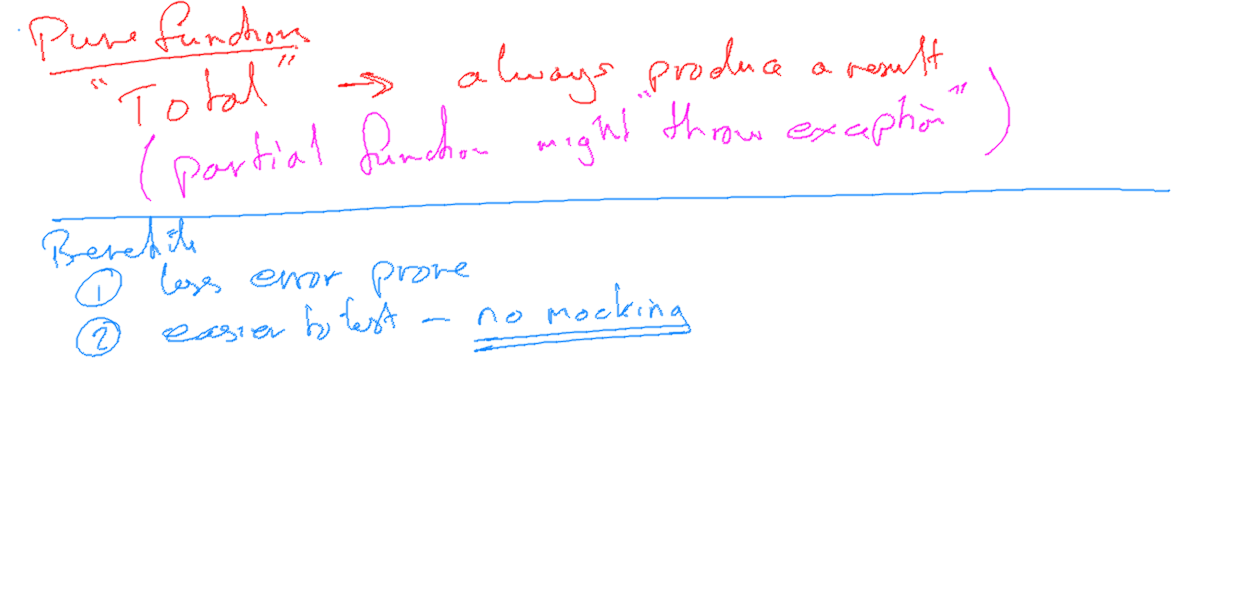 Pure functions
"Total" → always produce a result
(partial function might "throw exception")
Benefits
① less error prone
② easier to test – no mocking